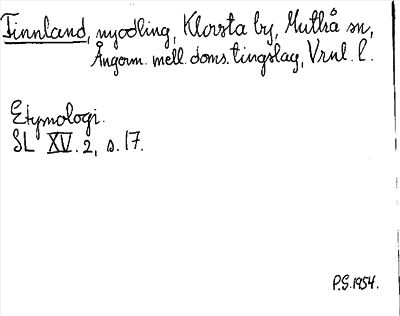 Finnland, nyodling, Klorsta by, Multrå sn,
Ångerm. mell. doms. tingslag, Vrnl. l.
Etymologi.
SL XV. 2, s. 17.
P.S. 1954.